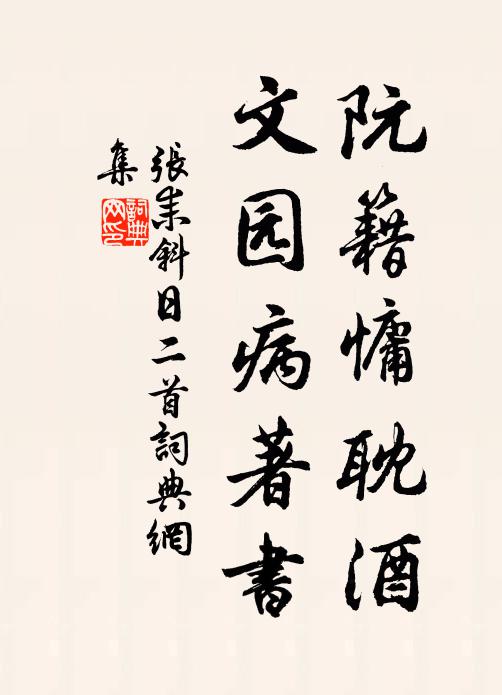 阮籍慵耽酒
文园病著書
張耒斜日二首詞典網
集
詞典网印